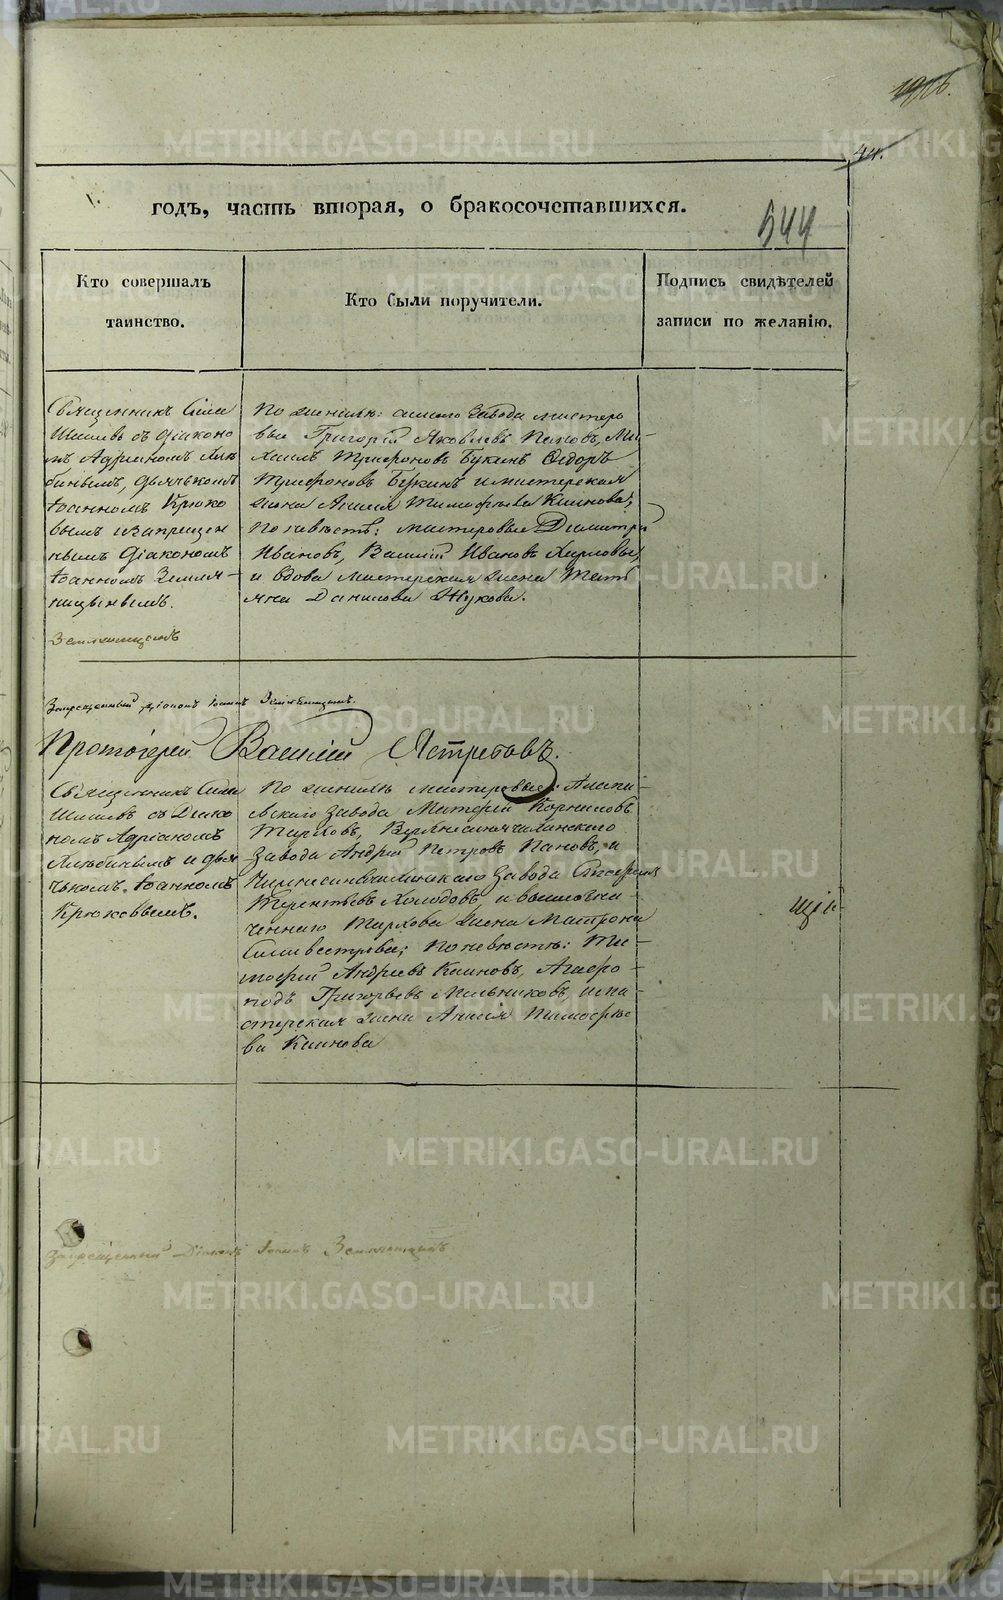 44.
544
годъ, часть вторая, о бракосочетавшихся.
Кто совершалъ
таинство.
Кто были поручители.
Подпись свидѣтелей
записи по желанію.
Священникъ Сила
Шишевъ съ діаконо
мъ Адріаномъ Хлю
бинымъ, дьячькомъ
Іоанномъ Крюко
вымъ и запрещен
нымъ діакономъ
Іоанномъ Земля-
ницынымъ.
Земляницынъ
По женихѣ: сего завода мастеро
вые Григорій Яковлевъ Пановъ, Ми-
хаилъ Трифоновъ Букинъ Ѳедоръ
Трифоновъ Букинъ и мастерская
жена Анисія Тимофѣева Каинова;
По невѣстѣ: мастеровые Димитрій
Ивановъ, Василій Ивановъ Хирловы,
и вдова мастерская жена Татъ
яна Данилова Жукова.
Запрещенный діаконъ Іоаннъ Земляницынъ.
Протоіерей Василій Ястребовъ.
Священникъ Сила
Шишевъ съ Діако
номъ Адріаномъ
Хлюбинымъ и дья
чькомъ Іоанномъ
Крюковымъ.
По женихѣ мастеровые: Алапа-
евскаго завода Матфей Корниловъ
Тарховъ, Верхнесинячихинскаго
завода Андрей Петровъ Пановъ, и
Нижнесинячихинскаго завода
Терентьевъ Холодовъ, и вышеозна
ченнаго Тархова жена Матрона
Силивестрова; По невѣстѣ: Ти-
мофей Андреевъ Каиновъ, Агафо-
нодъ Григорьевъ Мельниковъ, и ма-
стерская жена Анисія Тимофѣе
ва Каинова
Запрещенный Діаконъ Іоаннъ Земляницынъ
METRIKI.GASO-URAL.RU